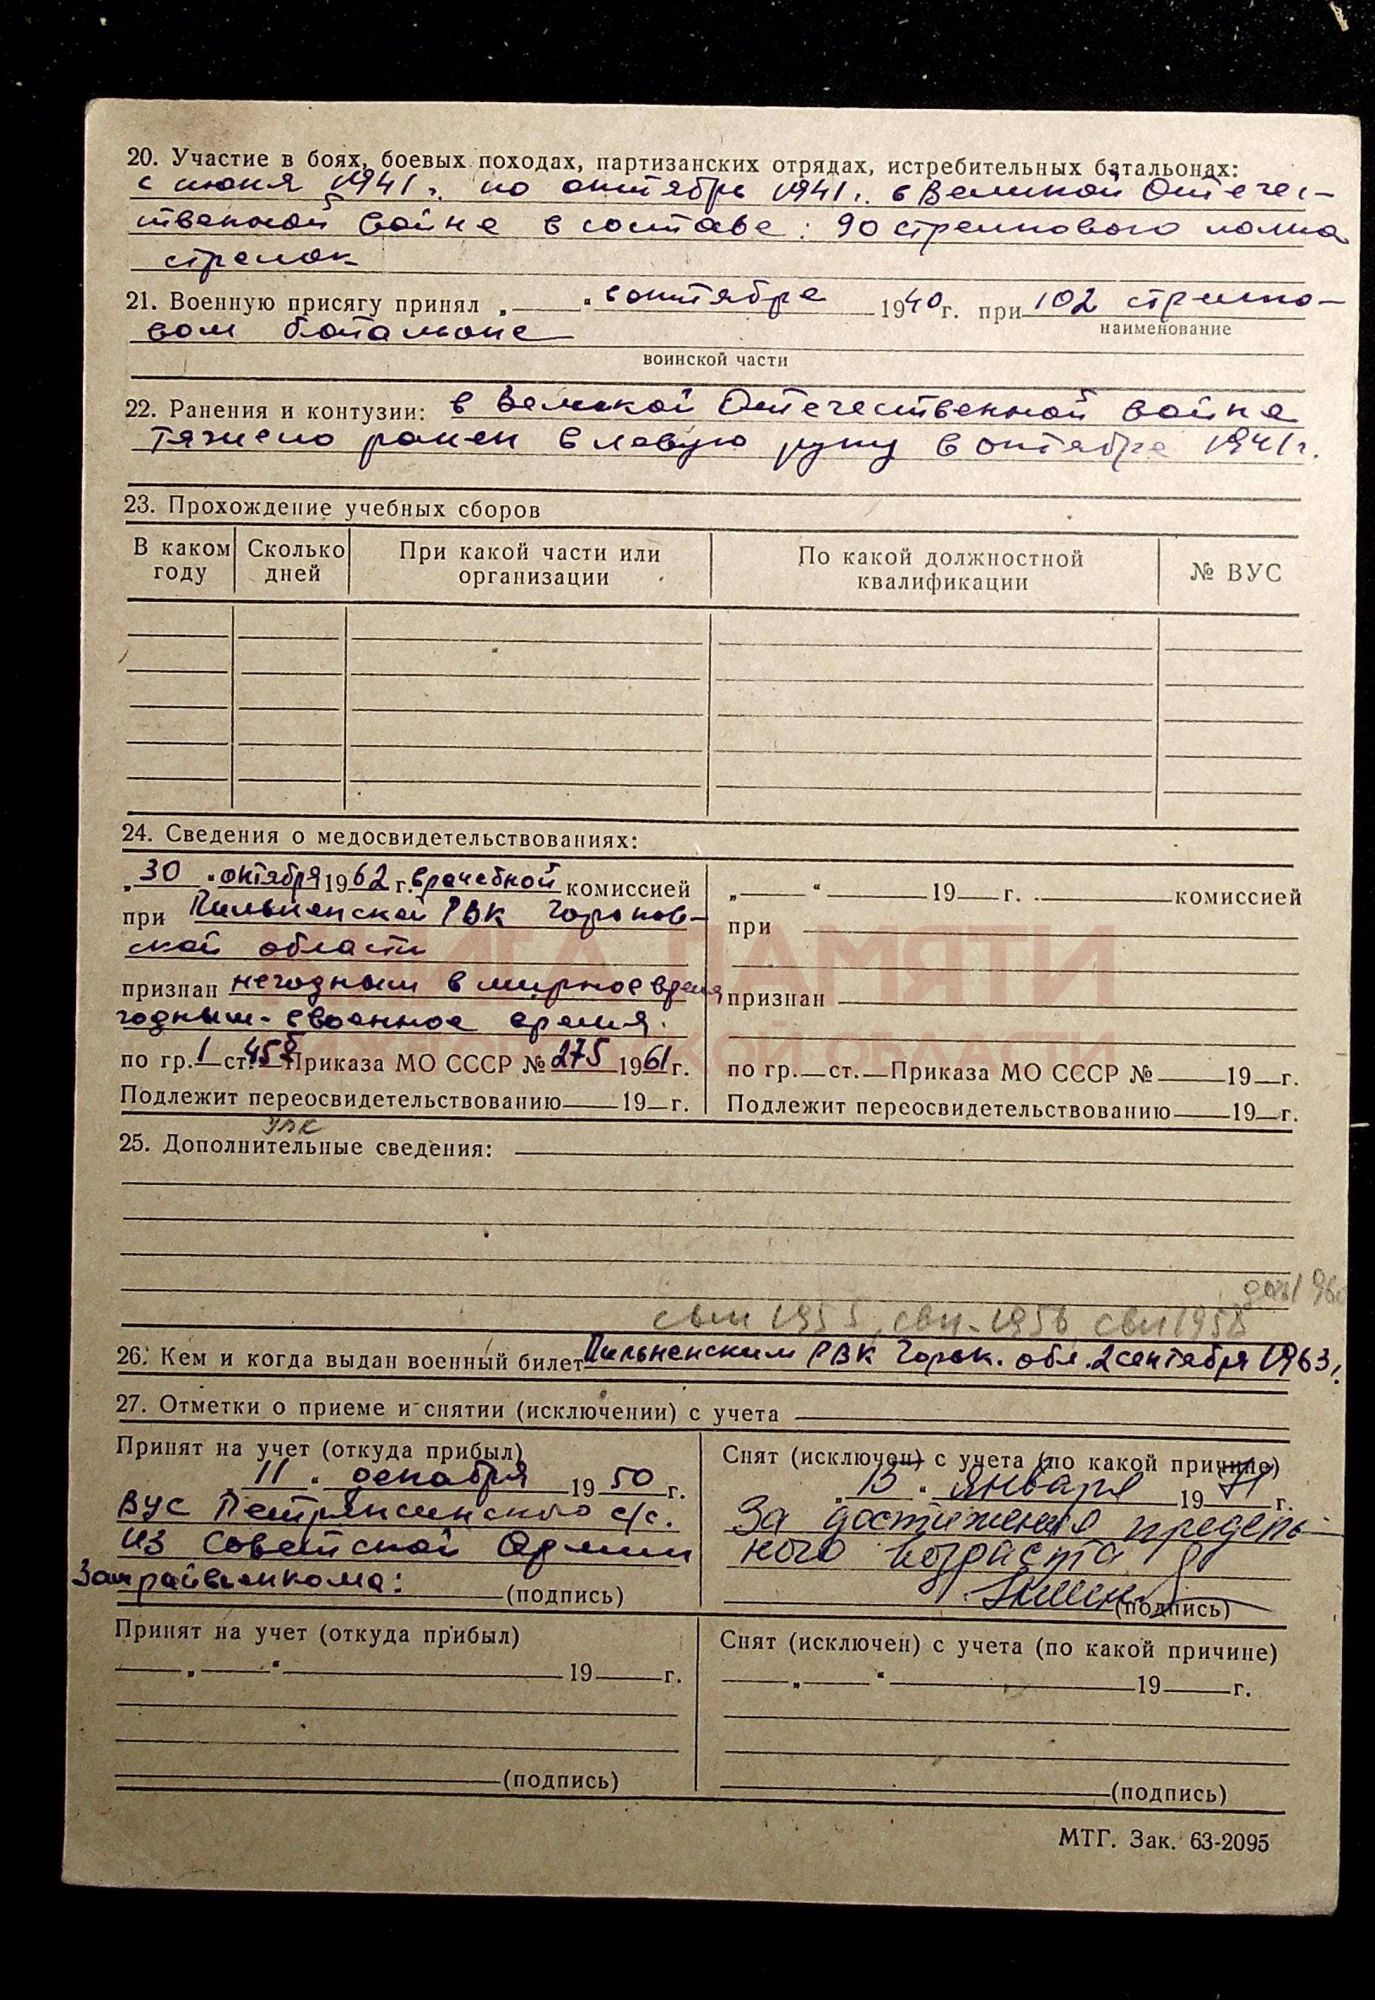 20. Участие в боях, боевых походах, партизанских отрядах, истребительных батальонах:
с июня 1941г. по октябрь 1941г. в Великой Отечес-
твенной войне в составе: 90 стрелкового полка
стрелок
21. Военную присягу принял „ “ 1940г. при 102 стрелко-
наименование
вом батальоне
воинской части
22. Ранения и контузии: в Великой Отечественной войне
тяжело ранен в левую руку в октябре 1941г.
23. Прохождение учебных сборов
В каком году Сколько дней При какой части или организации По какой должностной квалификации № ВУС
24. Сведения о медосвидетельствованиях:
„30“ октября 1962г. врачебной комиссией
при Пильненской РВК Горьков-
ской области
признан негодным в мирное время
годным в военное время.
по гр. 1 ст. 45б Приказа МО СССР № 275 1961г.
Подлежит переосвидетельствованию 19 г.
„ “ 19 г. комиссией
при
признан
по гр. ст. Приказа МО СССР № 19 г.
Подлежит переосвидетельствованию 19 г.
КНИГА ПАМЯТИ
НИЖЕГОРОДСКОЙ ОБЛАСТИ
25. Дополнительные сведения:
1955, 1956, 1958
26. Кем и когда выдан военный билет Пильненским РВК Горьк. обл. 2 сентября 1963г.
27. Отметки о приеме и снятии (исключении) с учета
Принят на учет (откуда прибыл)
11 декабря 1950 г.
ВУС Петряксинского с/с.
из Советской Армии
Зам райвоенкома: (подпись)
Снят (исключен) с учета (по какой причине)
„13“ января 1971 г.
За достижения предель-
ного возраста
(подпись)
Принят на учет (откуда прибыл)
„ “ 19 г.
(подпись)
Снят (исключен) с учета (по какой причине)
„ “ 19 г.
(подпись)
МТГ. Зак. 63-2095